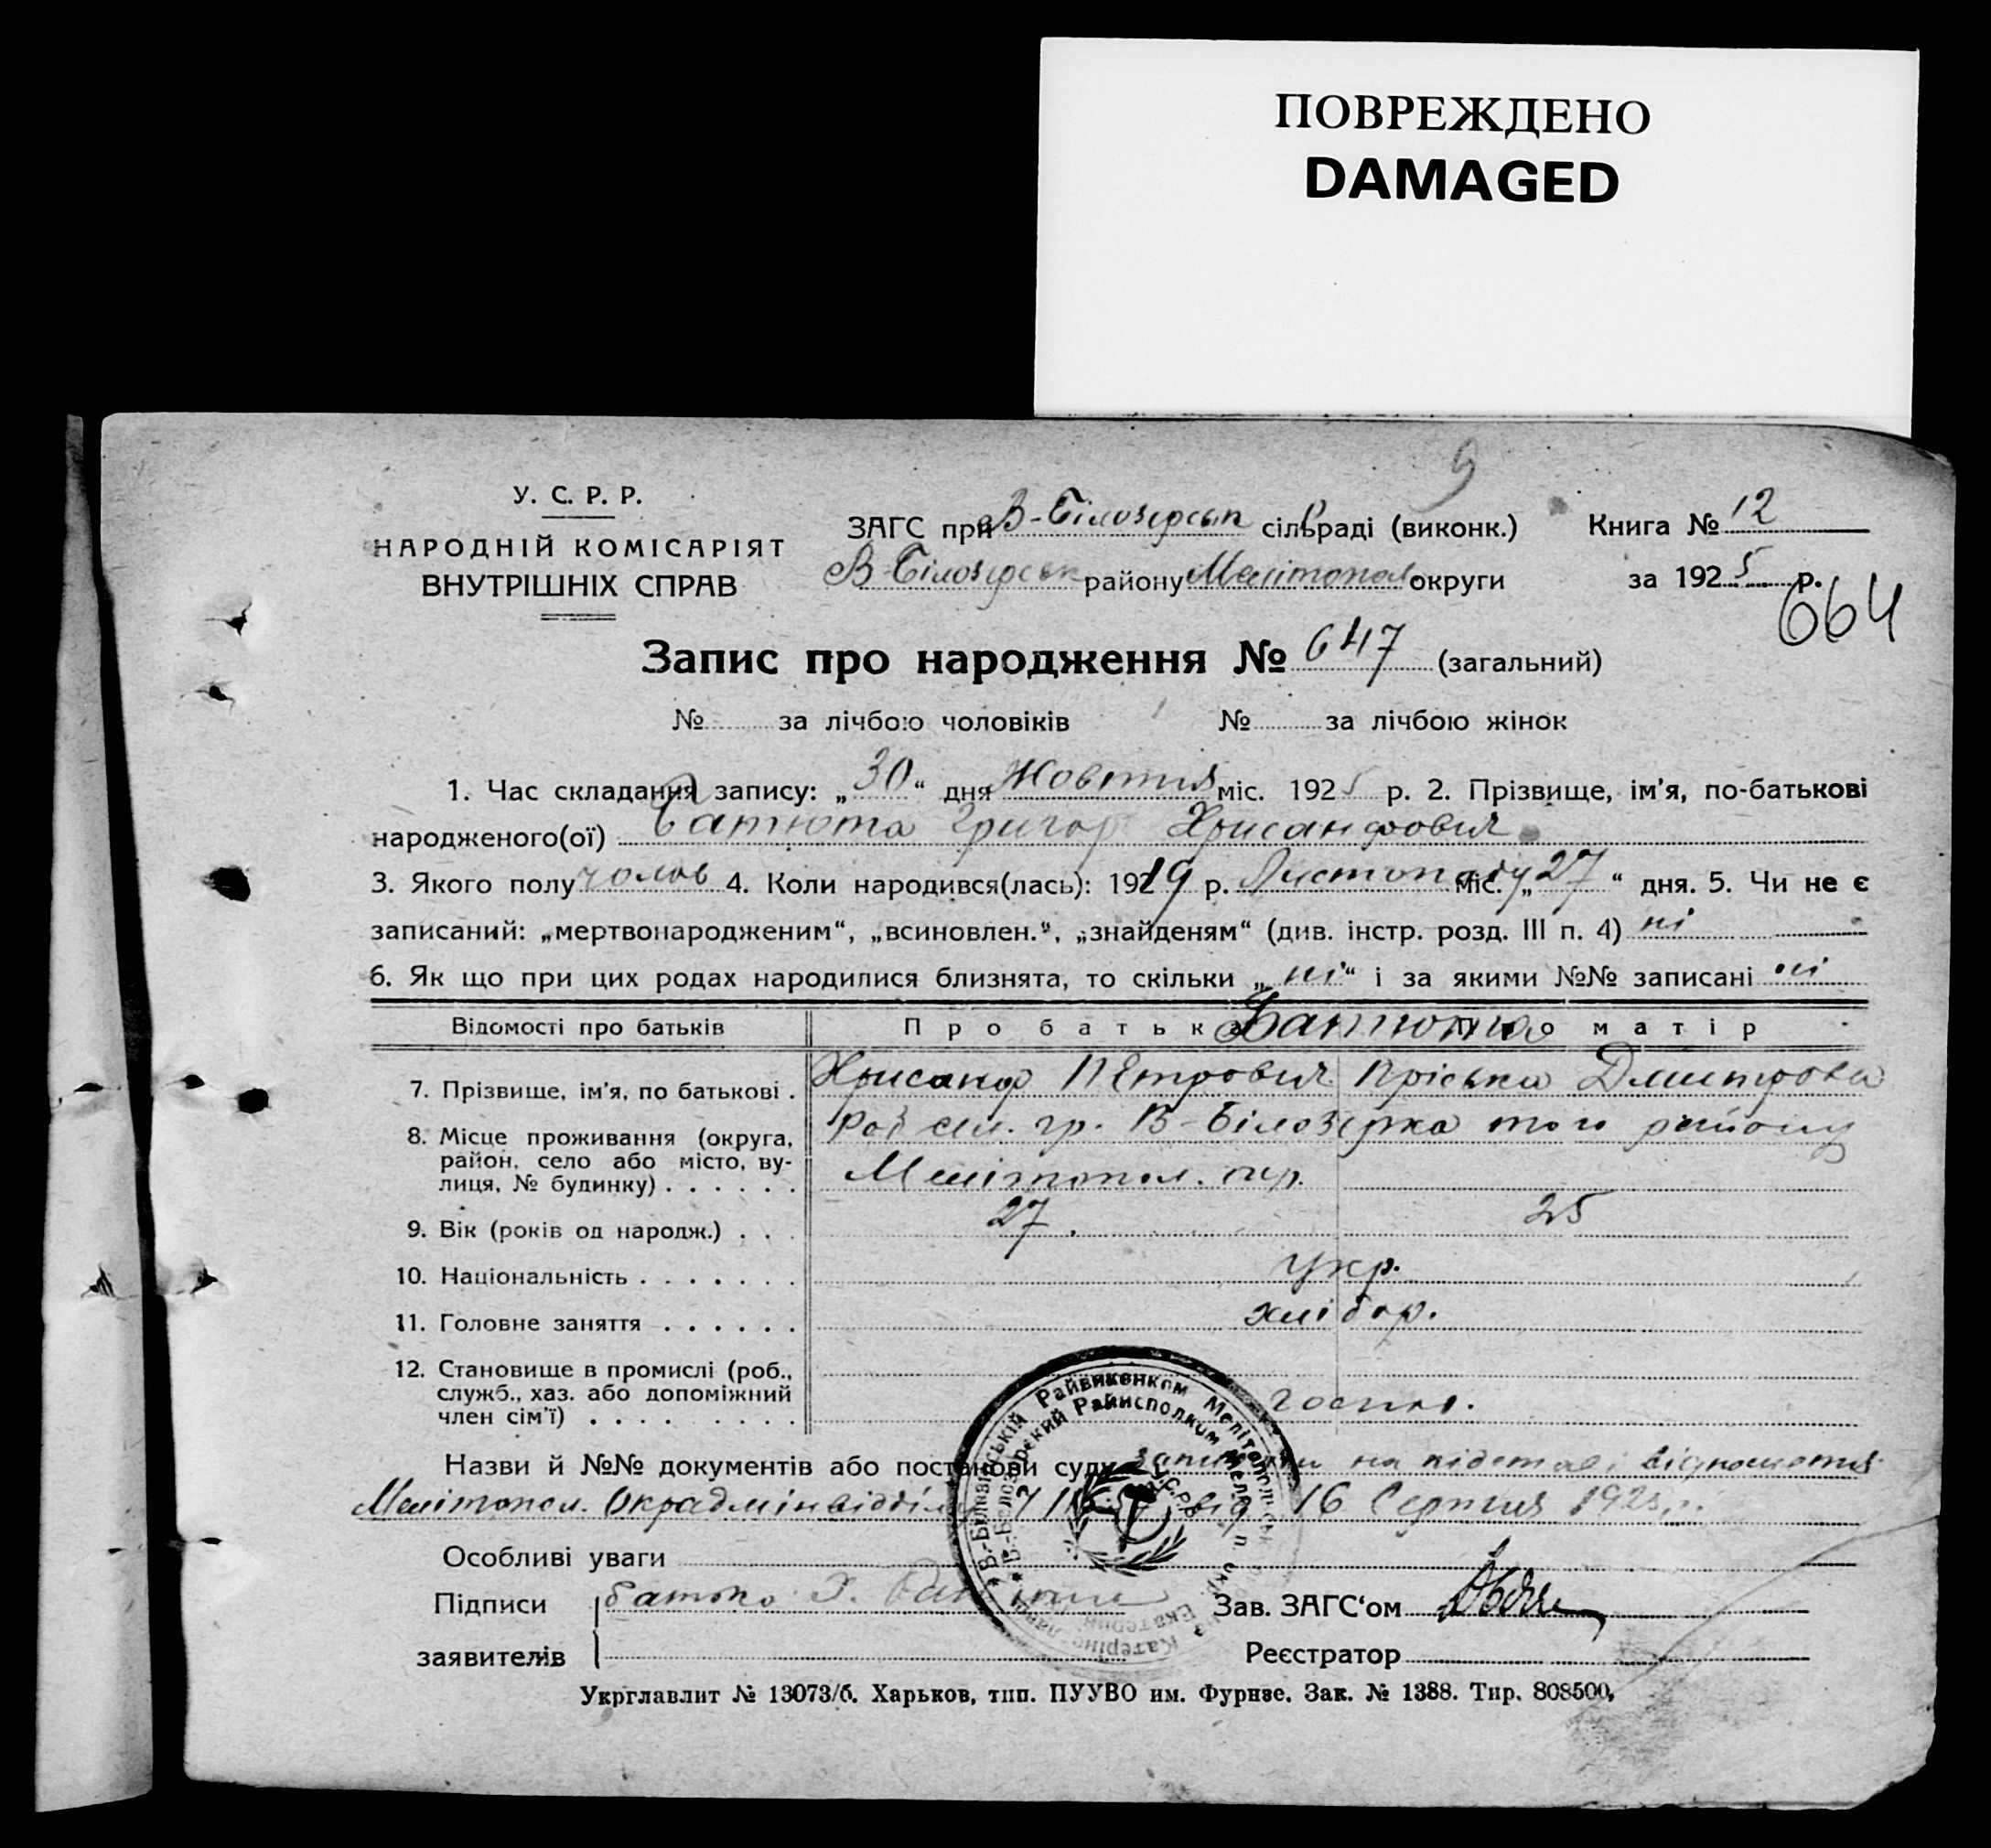 ПОВРЕЖДЕНО
DAMAGED
9
У. С. Р. Р.
НАРОДНІЙ КОМІСАРІЯТ
ВНУТРІШНІХ СПРАВ
ЗАГС при В-Білозерськ сільраді (виконк.) Книга № 12
В-Білозерськ району Мелітопол округи за 1925 р.
664
Запис про народження № 647 (загальний)
№ за лічбою чоловіків № за лічбою жінок
1. Час складання запису: „30“ дня Жовтня міс. 1925 р. 2. Прізвище, ім'я, по-батькові
народженого(ої) Батюта Григор Хрисанфович
3. Якого полу чолов 4. Коли народився(лась): 1919 р. Листопаду міс. „27“ дня. 5. Чи не є
записаний: „мертвонародженим“, „всиновлен.“, „знайденям“ (див. інстр. розд. III п. 4) ні
6. Як що при цих родах народилися близнята, то скільки „ні“ і за якими №№ записані ні
Відомості про батьків Про батька Батюта Про матір
7. Прізвище, ім'я, по батькові . Хрисанф Петрович Пріська Дмитрова
8. Місце проживання (округа, сел. гр. В-Білозерка того району
район, село або місто, ву-
лиця, № будинку) . . . . . . Мелітопол. окр.
9. Вік (років од народж.) . . . 27. 25
10. Національність . . . . . . . укр.
11. Головне заняття . . . . . . хлібор.
12. Становище в промислі (роб.,
служб., хаз. або допоміжний госпо.
член сім'ї) . . . . . . . .
Назви й №№ документів або постанови суду на підставі відношення
Мелітопол. Окрадмінвідділу від 16 Серпня 192 р.
Особливі уваги
Підписи батько Х. Зав. ЗАГС‘ом
заявителів Реєстратор
В.-Білозірський Райвиконком Мелітопольськ
В.-Белозерский Райисполком Мелитоп. окр.
У.С.Р.Р.
Катерінослав
Екатерин
Укрглавлит № 13073/б. Харьков, тип. ПУУВО им. Фурнзе. Зак. № 1388. Тир. 808500,